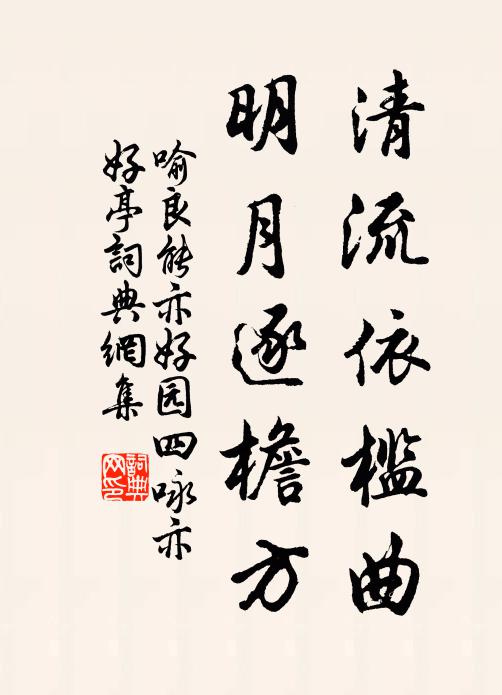 清流依槛曲
明月逐檐方
喻良能亦好园四咏亦
好亭詞典網集
詞典网印